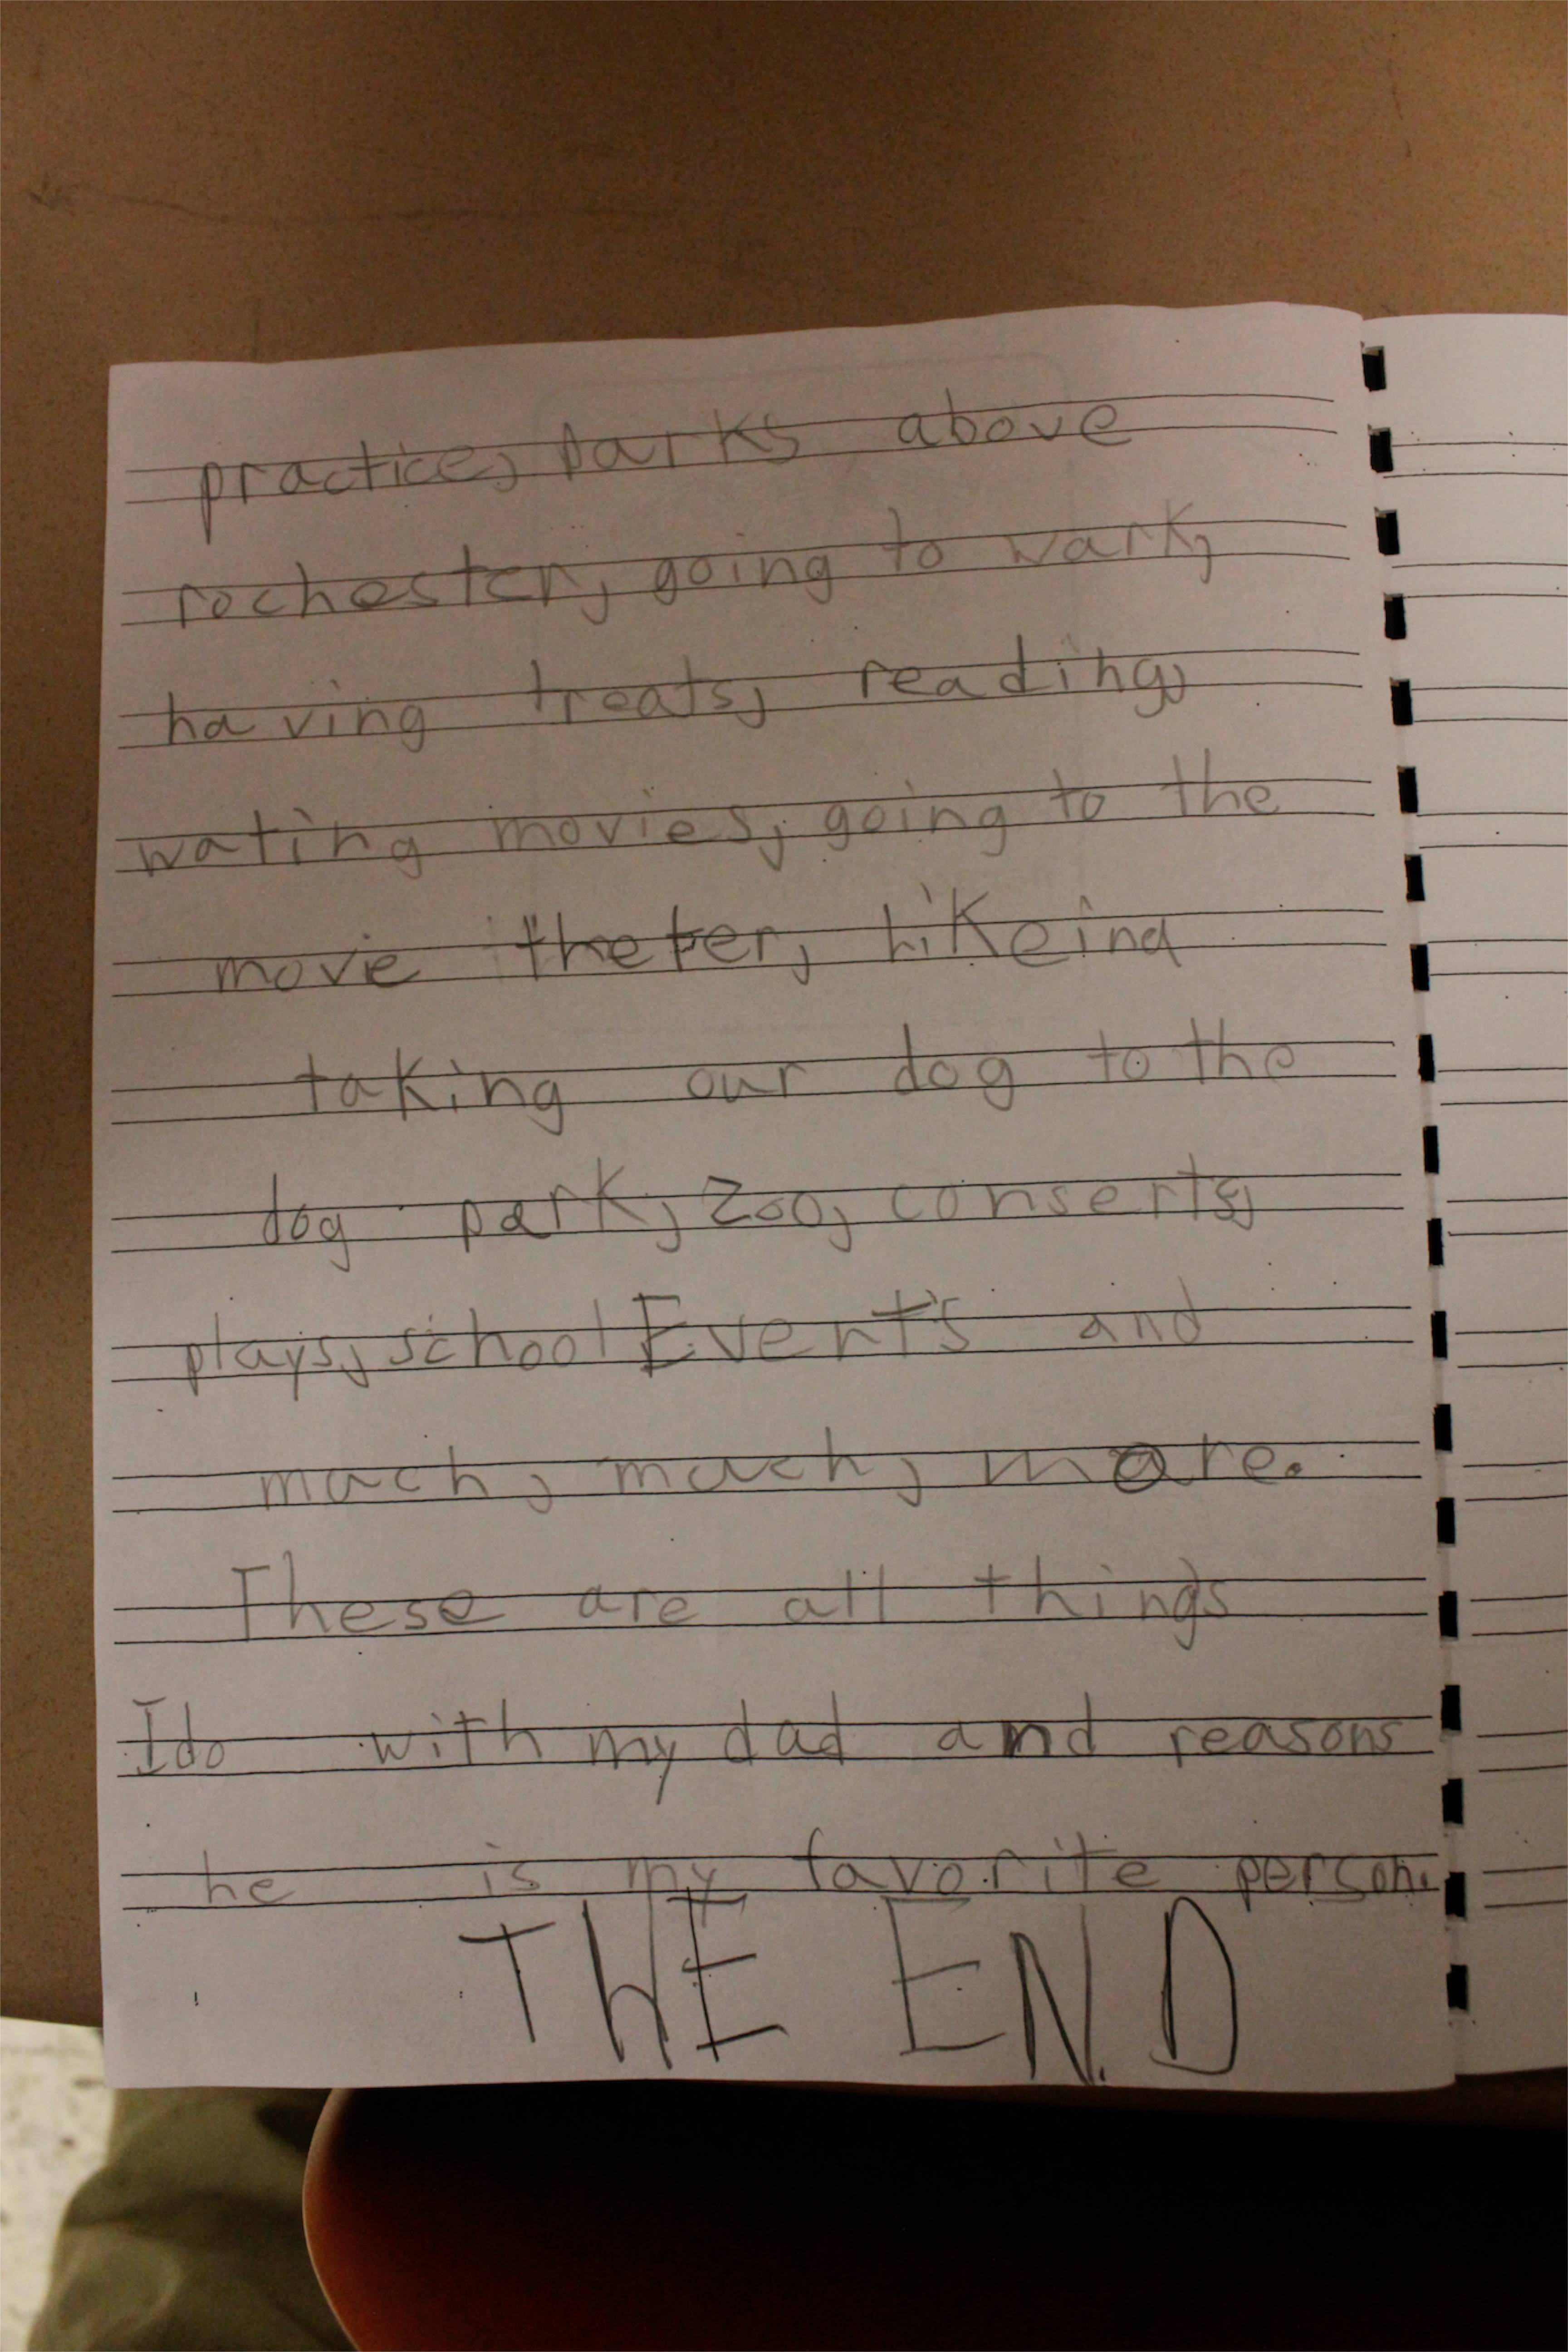 practice, parks above
rochester, going to wark,
having treats, reading,
wating movies, going to the
movie theter, hikeing
taking our dog to the
dog park, zoo, conserts,
plays, school Event's and
much, much, more.
These are all things
I do with my dad and reasons
he is my favorite person.
THE END